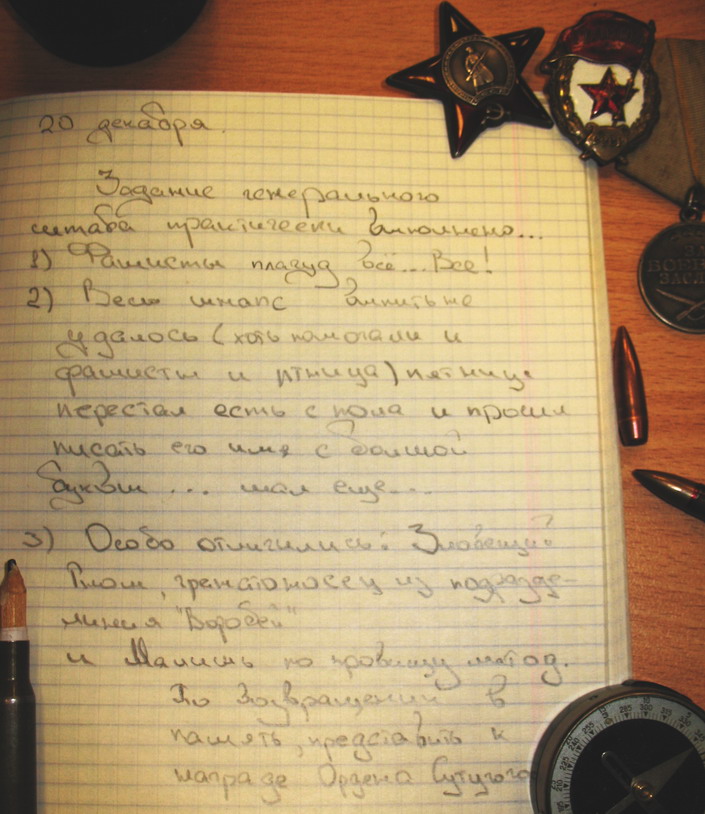 20 декабря.
Задание генерального
штаба практически выполнено...
1) Фашисты платуд всё... Все!
2) Весь шнапс выпить не
удалось (хоть помогали и
фашисты и птница) пятница
перестал есть с пола и просил
писать его имя с большой
буквы ... мал еще...
3) Особо отличились: Зловещий
Гном, гранатоносец из подразде-
ления "Воробей"
и Малышь по прозвищу метод.
По возвращений в
память, представить к
награде Ордена Сутулого
ЗА
БОЕВ
ЗАСЛ
285 300 315 330 345